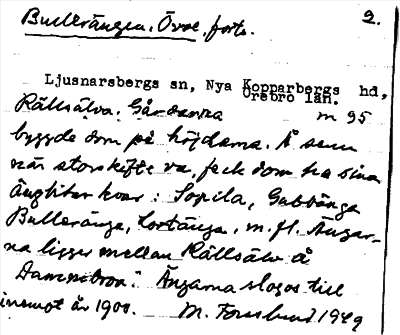 Bullerängen, Övre, forts. 2.
Ljusnarsbergs sn, Nya Kopparbergs hd,
Örebro län.
Rällsälva. Gårdarna m 95
byggde dom på höjdarna. Å sen
när storskifte va, feck dom ha sina
ängbitar kvar: Sopila, Gubbänga
Bulleränga, Lortänga, m.fl. Ängar-
na ligger mellan Rällsälv å
Dammbron." Ängarna slogos till
inemot år 1900. M. 1949